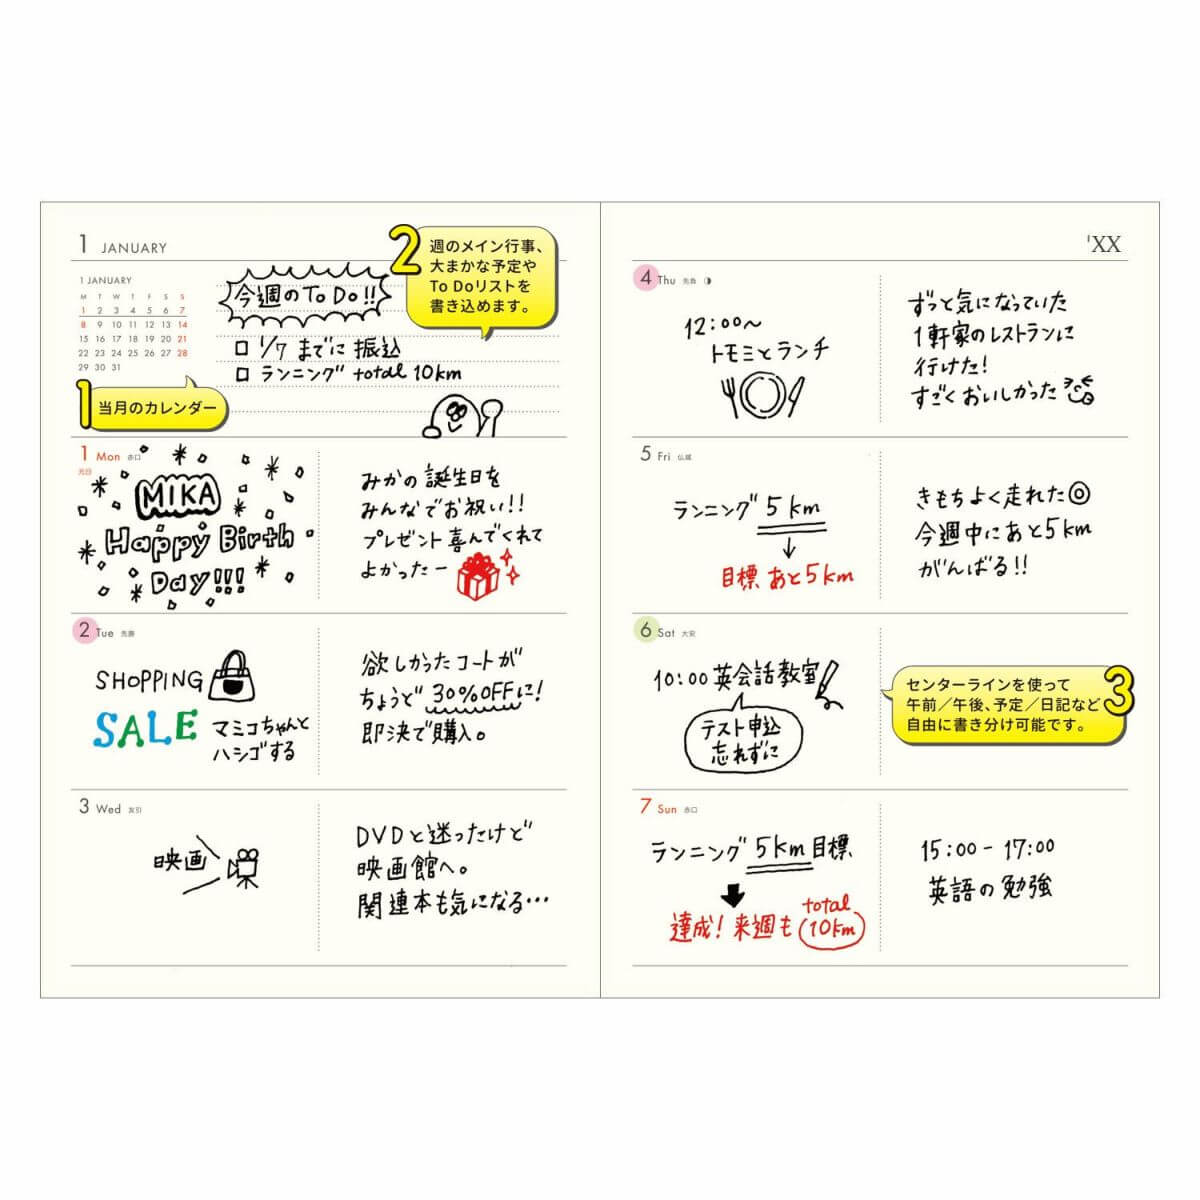 1 JANUARY
1 JANUARY
M T W T F S S
1 2 3 4 5 6 7
8 9 10 11 12 13 14
15 16 17 18 19 20 21
22 23 24 25 26 27 28
29 30 31
1 当月のカレンダー
今週のTo Do!!
□ 1/7 までに 振込
□ ランニング total 10km
2 週のメイン行事、
大まかな予定や
To Doリストを
書き込めます。
1 Mon 赤口
元日
MIKA
Happy Birth
Day!!!
みかの誕生日を
みんなでお祝い!!
プレゼント喜んでくれて
よかったー
2 Tue 先勝
SHOPPING
SALE
マミコちゃんと
ハシゴする
欲しかったコートが
ちょうど30%OFFに!
即決で購入。
3 Wed 友引
映画
DVDと迷ったけど
映画館へ。
関連本も気になる…
'XX
4 Thu 先負
12:00〜
トモミとランチ
ずっと気になっていた
1軒家のレストランに
行けた!
すごくおいしかった
5 Fri 仏滅
ランニング 5km
目標 あと5km
きもちよく走れた◎
今週中にあと5km
がんばる!!
6 Sat 大安
10:00 英会話教室
テスト申込
忘れずに
センターラインを使って
午前／午後、予定／日記など
自由に書き分け可能です。
3
7 Sun 赤口
ランニング 5km目標
達成! 来週も total
10km
15:00-17:00
英語の勉強